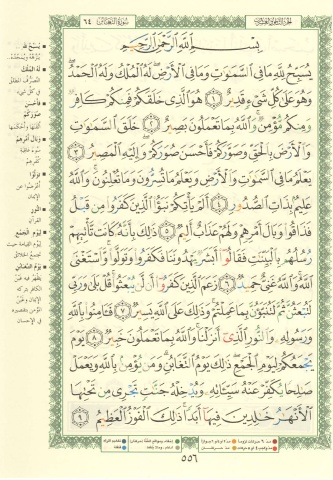 سورة التغابن ٦٤
بِسْمِ اللَّهِ الرَّحْمَٰنِ الرَّحِيمِ
يُسَبِّحُ لِلَّهِ مَا فِي السَّمَٰوَٰتِ وَمَا فِي الْأَرْضِ لَهُ الْمُلْكُ وَلَهُ الْحَمْدُ
وَهُوَ عَلَىٰ كُلِّ شَيْءٍ قَدِيرٌ ١ هُوَ الَّذِي خَلَقَكُمْ فَمِنكُمْ كَافِرٌ
وَمِنكُم مُّؤْمِنٌ وَاللَّهُ بِمَا تَعْمَلُونَ بَصِيرٌ ٢ خَلَقَ السَّمَٰوَٰتِ
وَالْأَرْضَ بِالْحَقِّ وَصَوَّرَكُمْ فَأَحْسَنَ صُوَرَكُمْ وَإِلَيْهِ الْمَصِيرُ ٣
يَعْلَمُ مَا فِي السَّمَٰوَٰتِ وَالْأَرْضِ وَيَعْلَمُ مَا تُسِرُّونَ وَمَا تُعْلِنُونَ وَاللَّهُ
عَلِيمٌ بِذَاتِ الصُّدُورِ ٤ أَلَمْ يَأْتِكُمْ نَبَؤُا الَّذِينَ كَفَرُوا مِن قَبْلُ
فَذَاقُوا وَبَالَ أَمْرِهِمْ وَلَهُمْ عَذَابٌ أَلِيمٌ ٥ ذَٰلِكَ بِأَنَّهُ كَانَت تَّأْتِيهِمْ
رُسُلُهُم بِالْبَيِّنَٰتِ فَقَالُوا أَبَشَرٌ يَهْدُونَنَا فَكَفَرُوا وَتَوَلَّوا وَّاسْتَغْنَى
اللَّهُ وَاللَّهُ غَنِيٌّ حَمِيدٌ ٦ زَعَمَ الَّذِينَ كَفَرُوا أَن لَّن يُبْعَثُوا قُلْ بَلَىٰ وَرَبِّي
لَتُبْعَثُنَّ ثُمَّ لَتُنَبَّؤُنَّ بِمَا عَمِلْتُمْ وَذَٰلِكَ عَلَى اللَّهِ يَسِيرٌ ٧ فَآمِنُوا بِاللَّهِ
وَرَسُولِهِ وَالنُّورِ الَّذِي أَنزَلْنَا وَاللَّهُ بِمَا تَعْمَلُونَ خَبِيرٌ ٨ يَوْمَ
يَجْمَعُكُمْ لِيَوْمِ الْجَمْعِ ذَٰلِكَ يَوْمُ التَّغَابُنِ وَمَن يُؤْمِن بِاللَّهِ وَيَعْمَلْ
صَٰلِحًا يُكَفِّرْ عَنْهُ سَيِّـَٔاتِهِ وَيُدْخِلْهُ جَنَّٰتٍ تَجْرِي مِن تَحْتِهَا
الْأَنْهَٰرُ خَٰلِدِينَ فِيهَا أَبَدًا ذَٰلِكَ الْفَوْزُ الْعَظِيمُ ٩
يُسَبِّحُ لله
لَهُ الْمُلْكُ
فَأَحْسَنَ
صُوَرَكُمْ
وَبَالَ أَمْرِهِمْ
تَوَلَّوْا
النُّورِ
القرآن
لِيَوْمِ الْجَمْعِ
يَوْمُ التَّغَابُنِ
٥٥٦